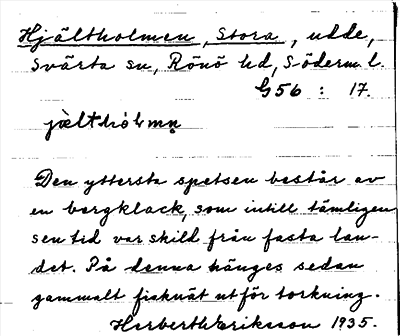 Hjältholmen, Stora, udde,
Svärta sn, Rönö hd, Söderm. l.
G56 : 17.
Den yttersta spetsen består av
en bergklack, som intill tämligen
sen tid var skild från fasta lan-
det. På denna hänges sedan
gammalt fisknät ut för torkning.
Herbert Eriksson 1935.